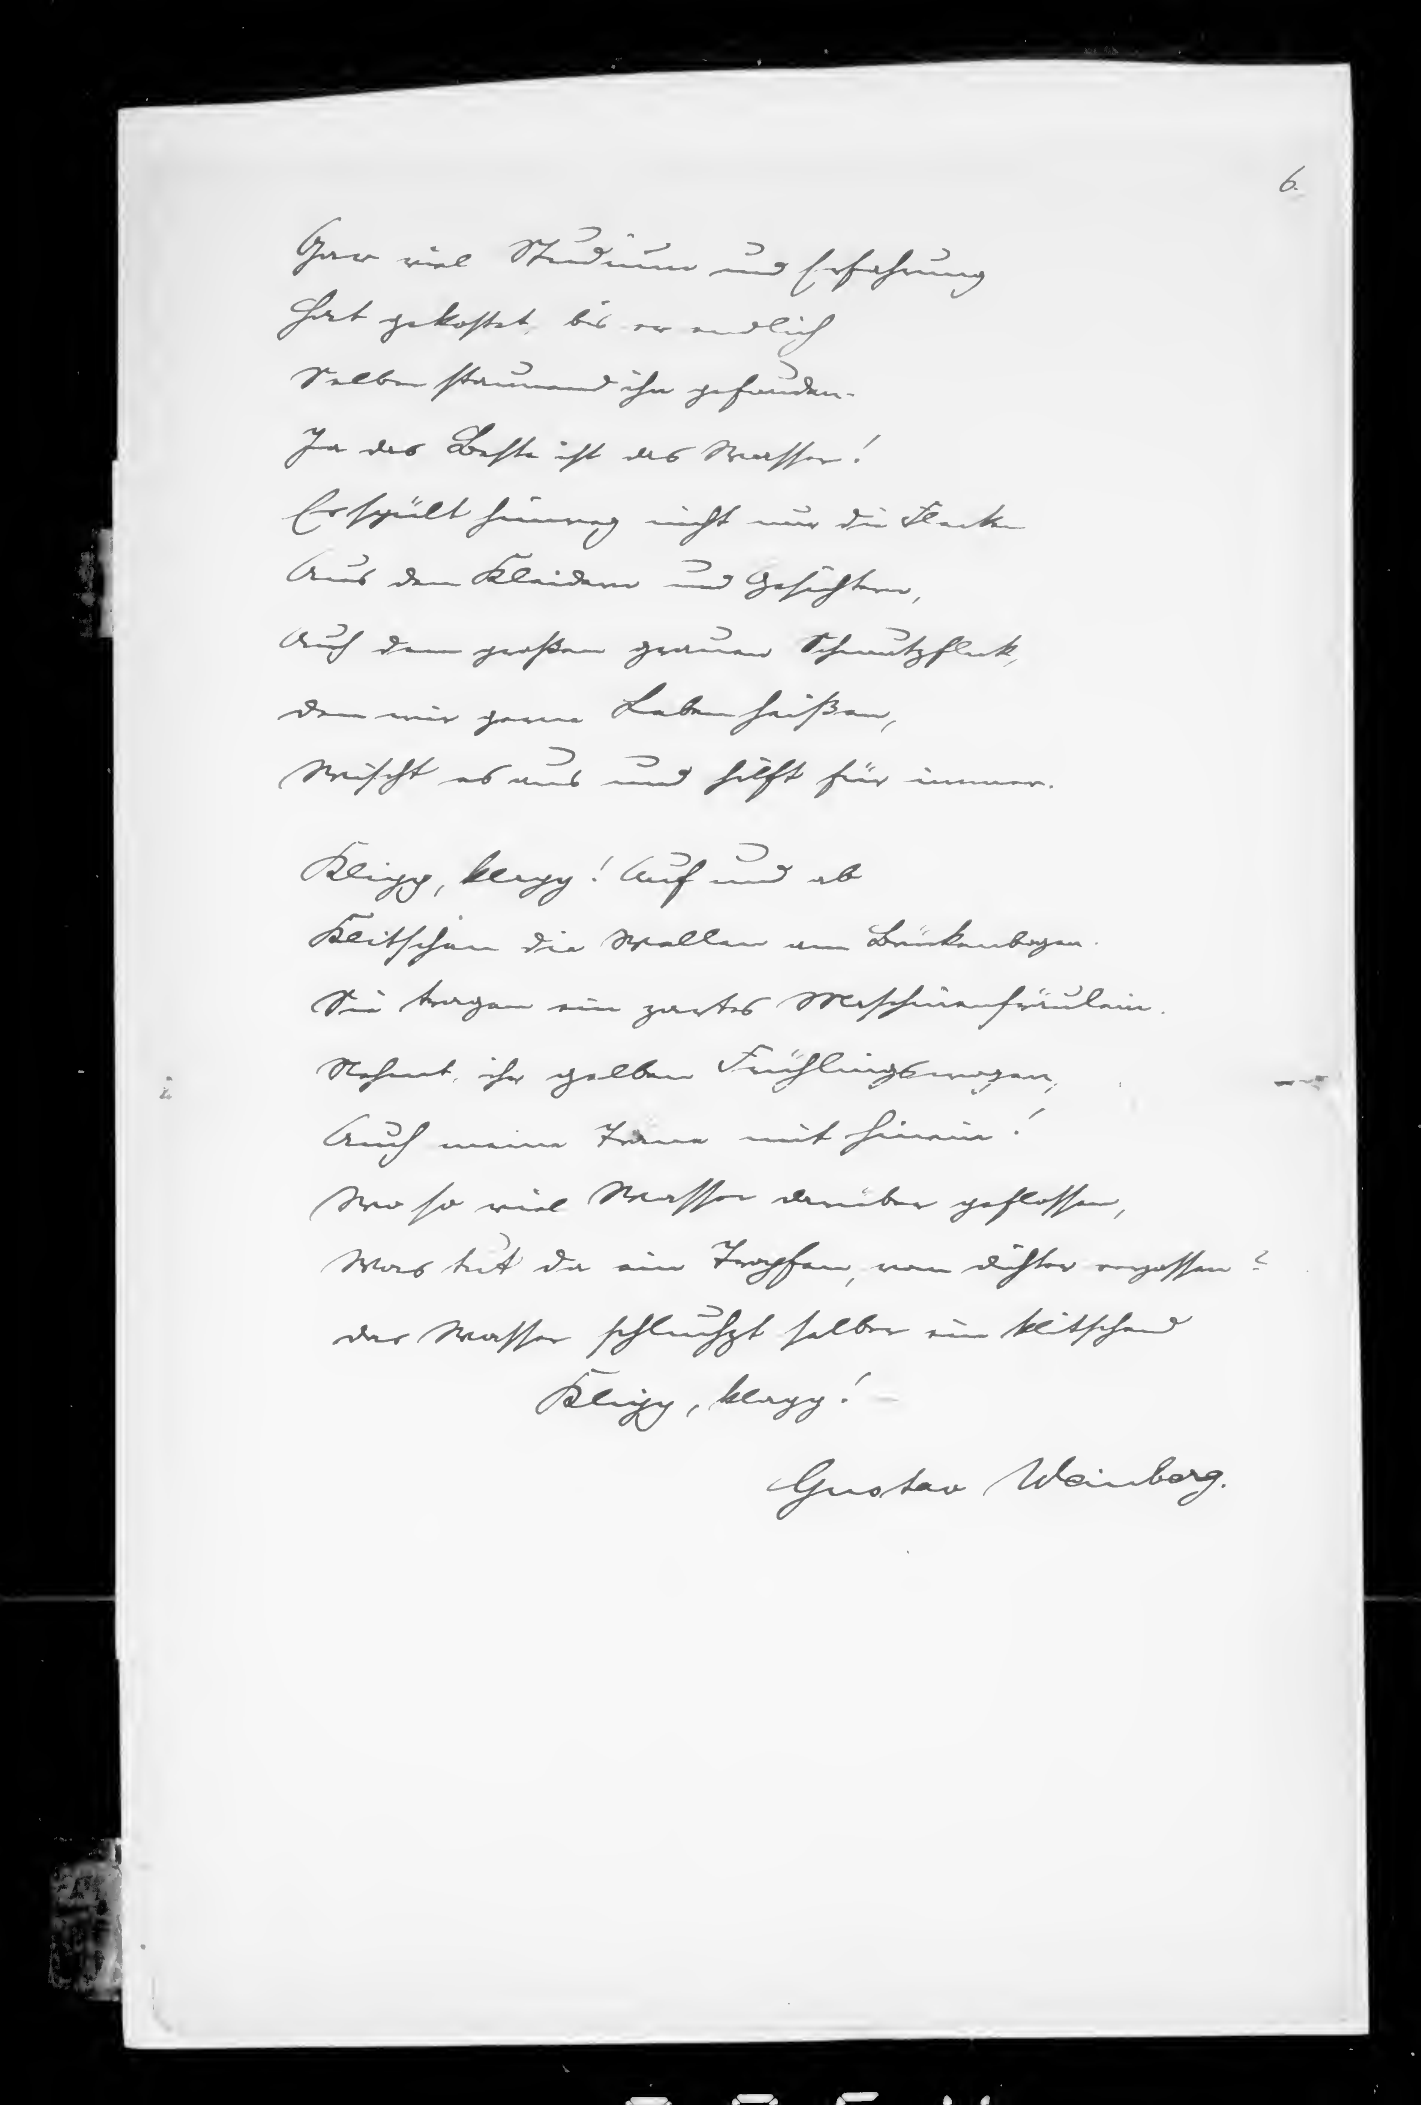 6.
Gar viel Studium und Erfahrung
Hat gekostet, bis er endlich
Selber staunend ihn gefunden.
Ja das Beste ist das Wasser!
Er spült hinweg nicht nur die Flecken
Aus den Kleidern und Gesichtern,
Auch den großen grauen Schmutzfleck,
den wir gerne Leben heißen,
Wischt es aus und hilft für immer.
Klipp, klapp! Auf und ab
Klitschen die Wellen am Brückenbogen.
Sie tragen ein zartes Maschinenfräulein.
Nehmt, ihr gelben Frühlingswogen,
Auch meine Träne mit hinein!
Wo so viel Wasser darüber geflossen,
Was tut da ein Tropfen, vom dichter vergossen?
das Wasser schluchzt selber ein klitschend
Klipp, klapp!
Gustav Weinberg.